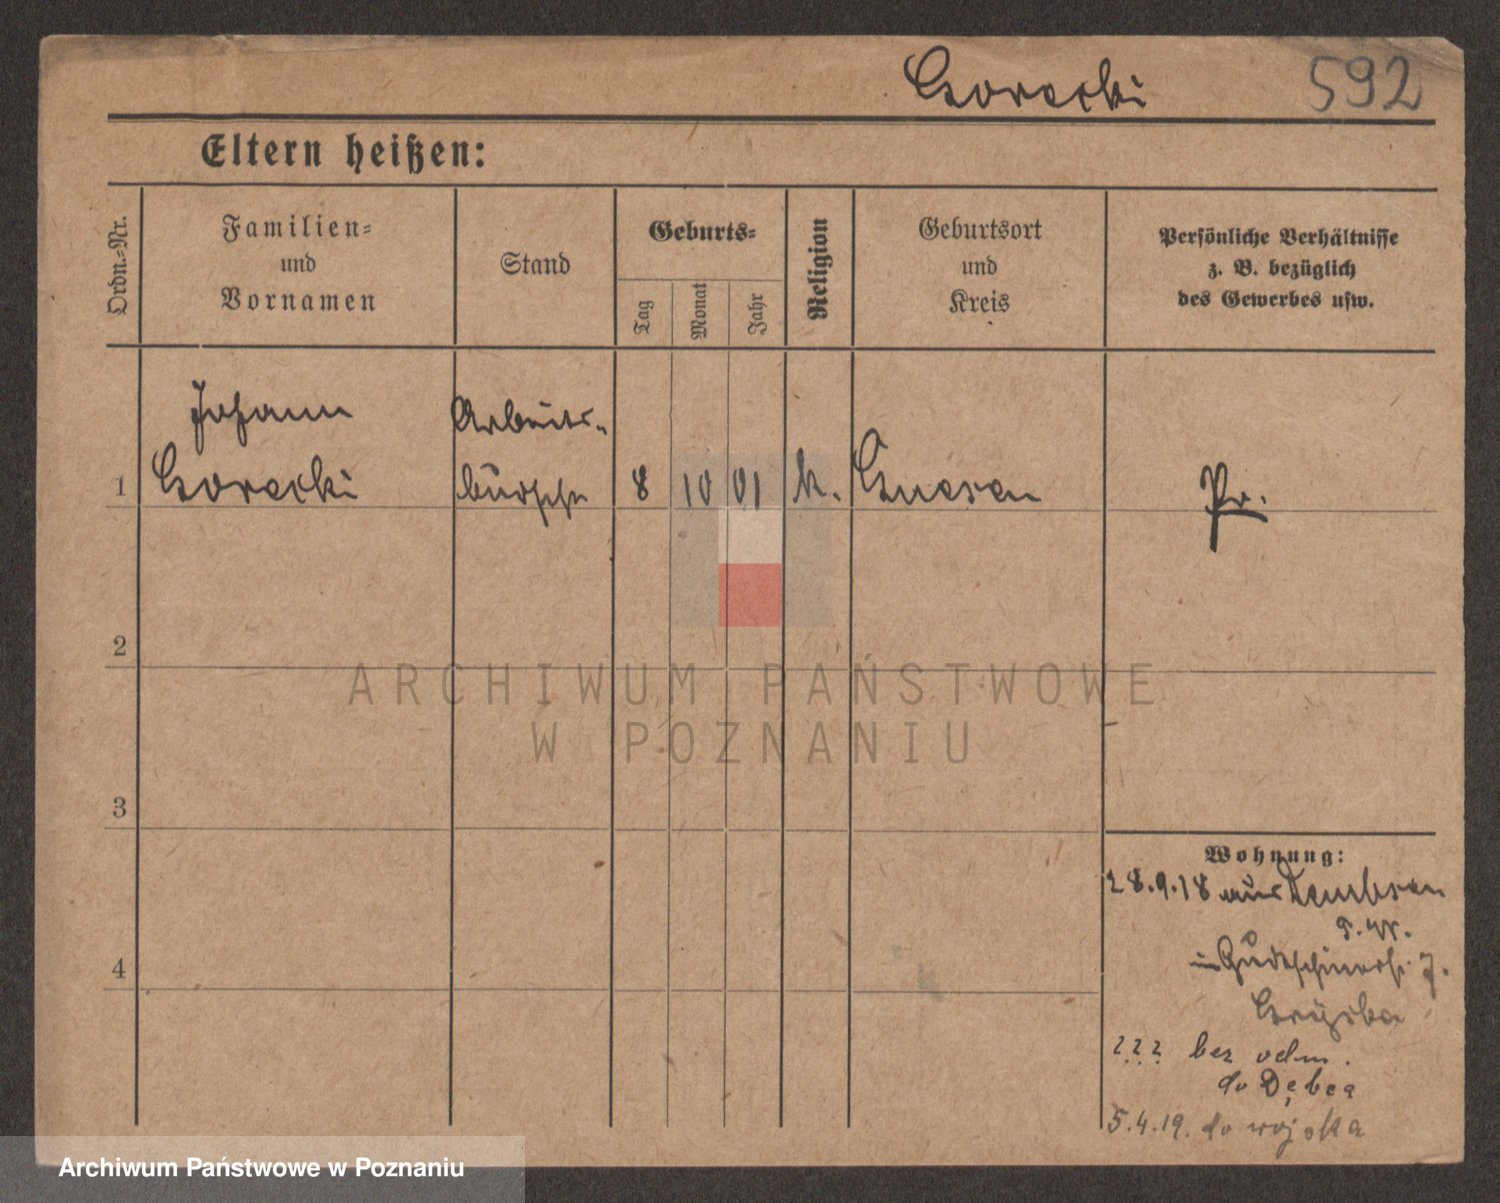 Gorecki 592
Eltern heißen:
Ordn.-Nr.
Familien-
und
Vornamen
Stand
Geburts-
Tag
Monat
Jahr
Religion
Geburtsort
und
Kreis
Persönliche Verhältnisse
z. B. bezüglich
des Gewerbes usw.
Johann Arbeits-
1 Gorecki bursche 8 10 01 k. Gnesen Pr.
2
3
4
Wohnung:
28.9.18 aus Dembsen
in 7.
Gryska
??? bez odm.
do Dębca
5.4.19. do wojska
ARCHIWUM PAŃSTWOWE
W POZNANIU
Archiwum Państwowe w Poznaniu